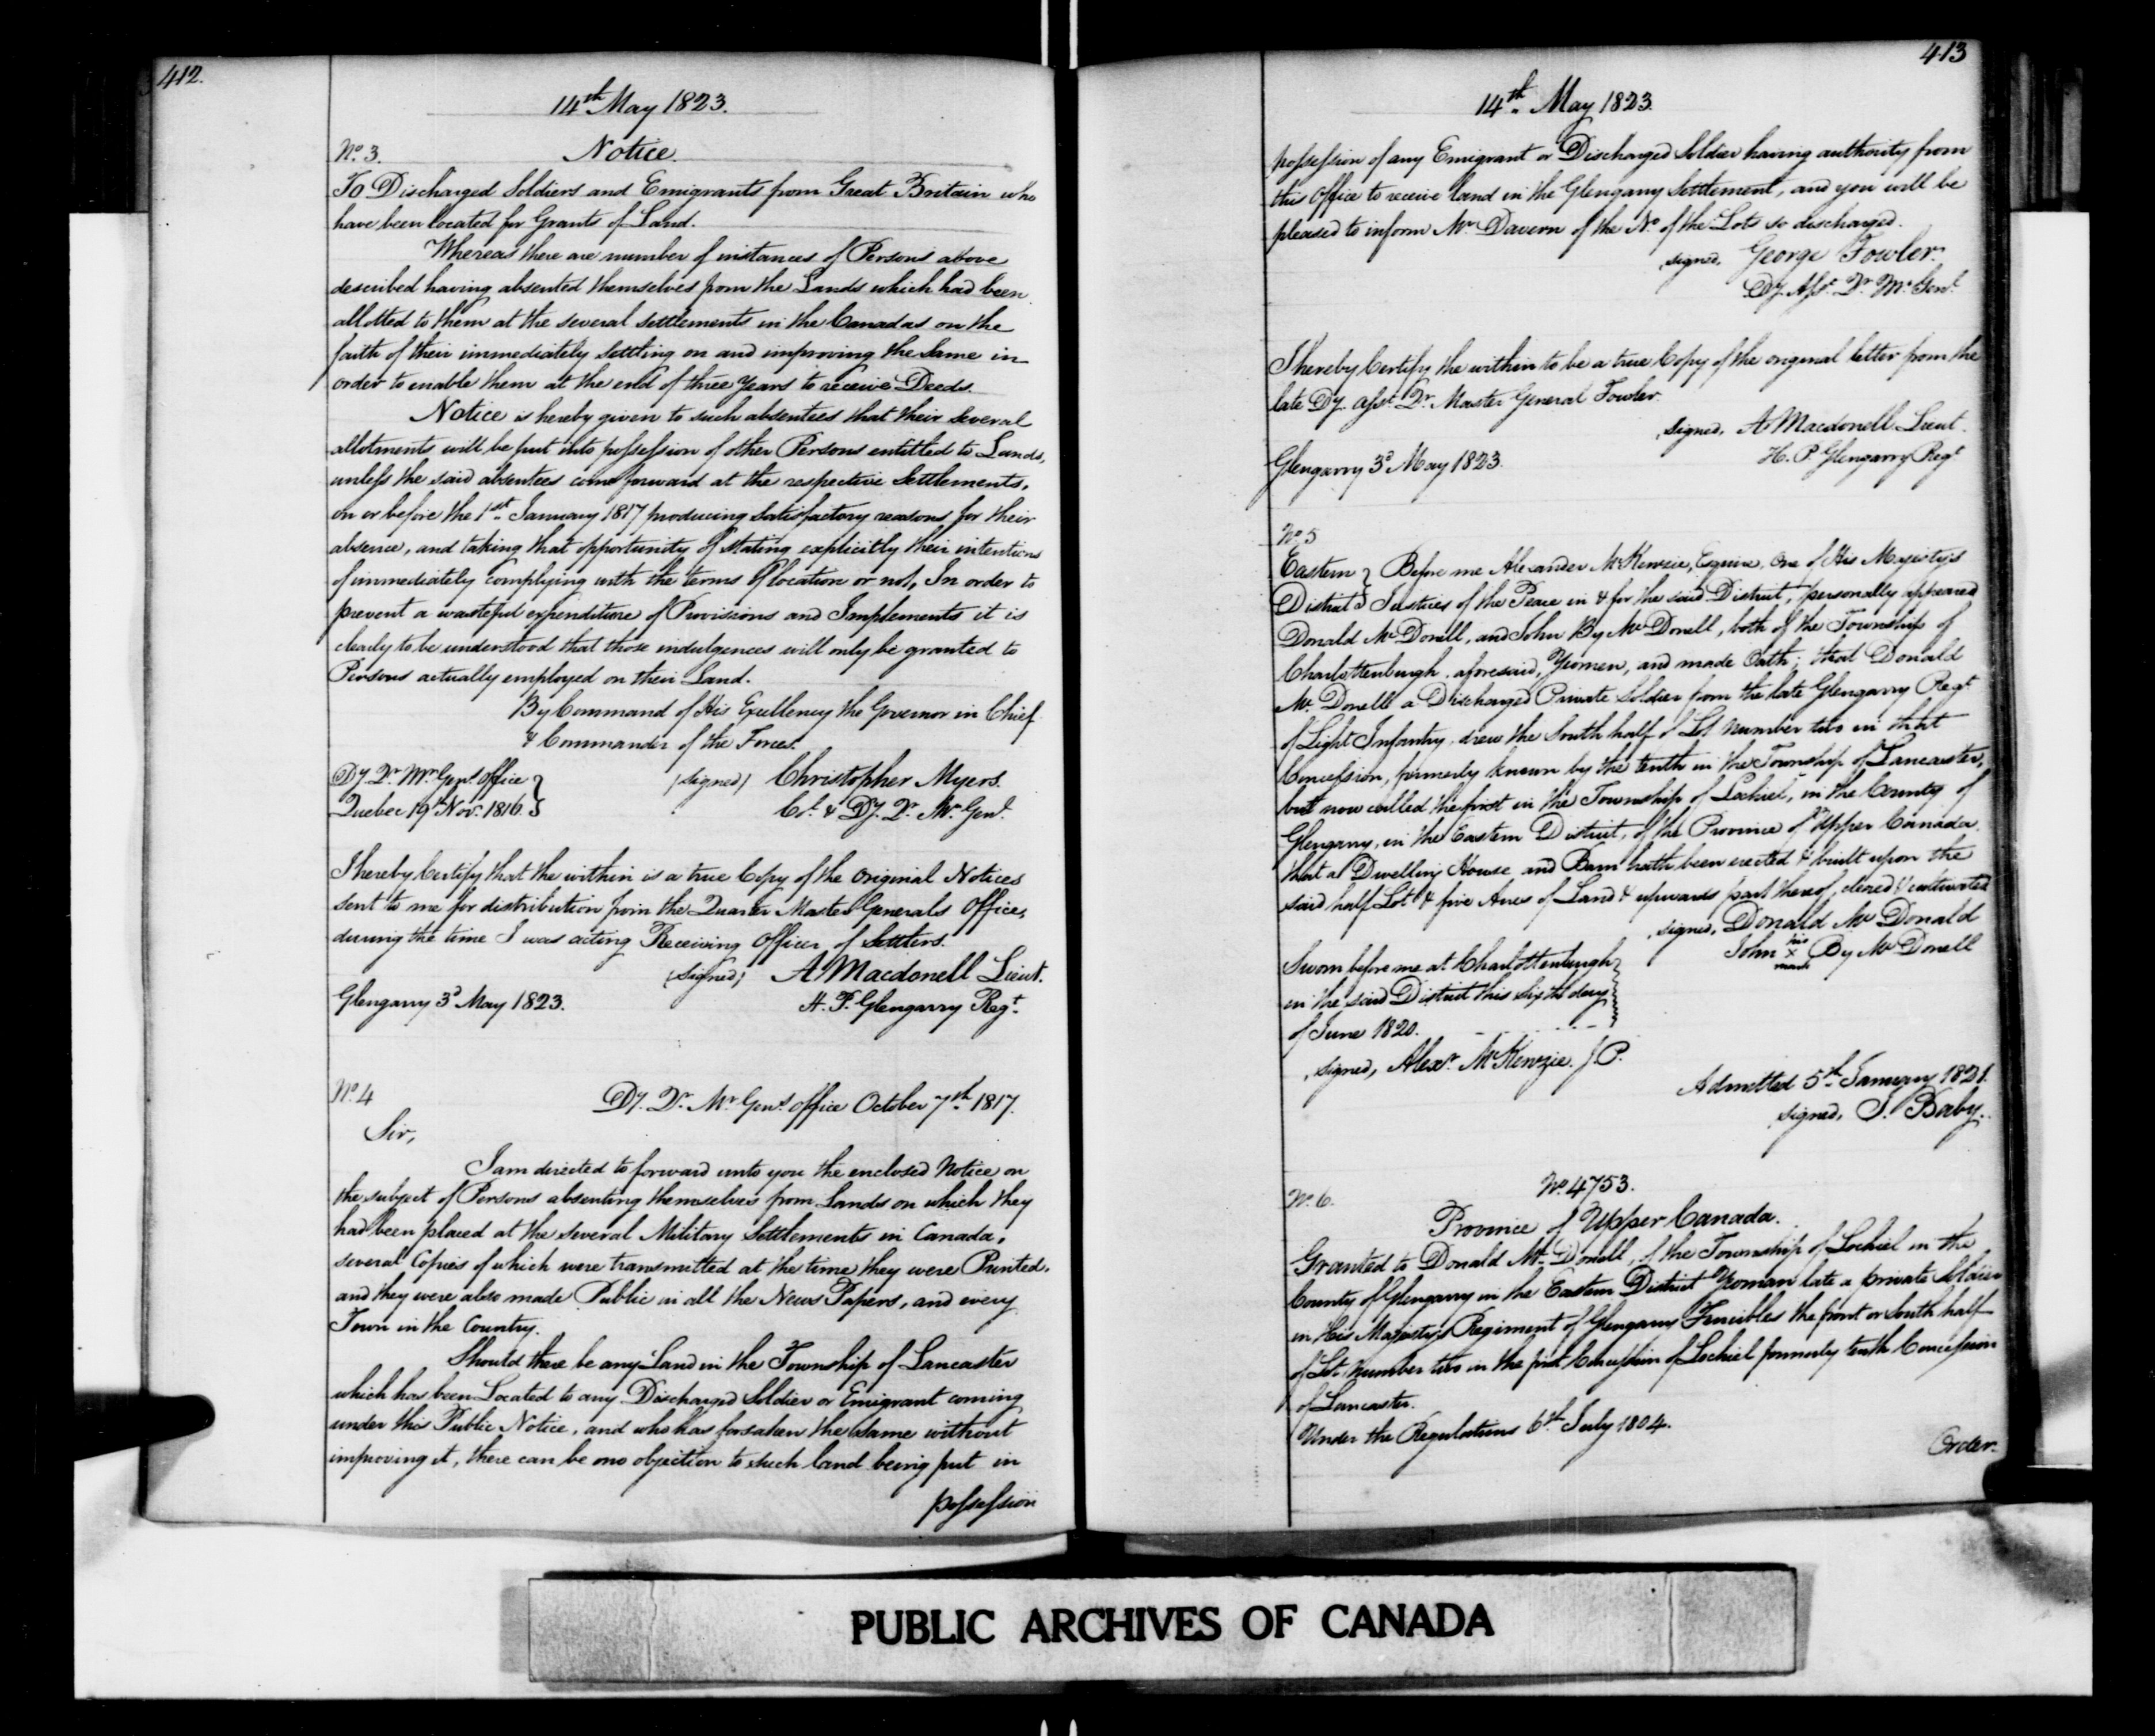 412.
14th May 1823.
No. 3. Notice.
To Discharged Soldiers and Emigrants from Great Britain who
have been located for Grants of Land.
Whereas there are number of instances of Persons above
described having absented themselves from the Lands which had been
allotted to them at the several settlements in the Canadas on the
faith of their immediately settling on and improving the same in
order to enable them at the end of three years to receive Deeds.
Notice is hereby given to such absentees that their several
allotments will be put into possession of other Persons entitled to Lands,
unless the said absentees come forward at the respective Settlements,
on or before the 1st January 1817 producing satisfactory reasons for their
absence, and taking that opportunity of stating explicitly their intentions
of immediately complying with the terms of location or not, In order to
prevent a wasteful expenditure of Provisions and Implements it is
clearly to be understood that those indulgences will only be granted to
Persons actually employed on their Land.
By Command of His Excellency the Governor in Chief
& Commander of the Forces.
Dy. Qr. Mr. Genl. Office
Quebec 19th Nov. 1816.
(signed) Christopher Myers.
Cl. & Dy. Qr. Mr. Genl.
I hereby Certify that the within is a true Copy of the original Notices
sent to me for distribution from the Quarter Master Generals Office,
during the time I was acting Receiving Officer of Settlers.
(signed) A Macdonell Lieut.
Glengarry 3d May 1823. H. P. Glengarry Regt.
No. 4 Dy. Qr. Mr. Genl. office October 7th 1817.
Sir,
I am directed to forward unto you the enclosed Notice on
the subject of Persons absenting themselves from Lands on which they
had been placed at the several Military Settlements in Canada,
several Copies of which were transmitted at the time they were Printed,
and they were also made Public in all the News Papers, and every
Town in the Country.
Should there be any Land in the Township of Lancaster
which has been Located to any Discharged Soldier or Emigrant coming
under this Public Notice, and who has forsaken the same without
improving it, there can be no objection to such land being put in
possession
413
14th May 1823.
possession of any Emigrant or Discharged Soldier having authority from
this Office to receive land in the Glengarry Settlement, and you will be
pleased to inform Mr. Davern of the No. of the Lots so discharged.
signed, George Fowler.
Dy. Asst. Qr. Mr. Genl.
I hereby Certify the within to be a true Copy of the original letter from the
late Dy. Asst. Qr. Master General Fowler.
signed, A Macdonell Lieut.
Glengarry 3d May 1823. H. P. Glengarry Regt.
No. 5
Eastern Before me Alexander McKenzie, Esquire, One of His Majesty's
District Justices of the Peace in & for the said District, personally appeared
Donald McDonell, and John By McDonell, both of the Township of
Charlottenburgh, aforesaid, Yeomen, and made Oath; that Donald
McDonell a Discharged Private Soldier from the late Glengarry Regt.
of Light Infantry, drew the South half of Lot number two in that
Concession, formerly known by the tenth in the Township of Lancaster,
but now called the first in the Township of Lochiel, in the County of
Glengarry, in the Eastern District, of the Province of Upper Canada
that a Dwelling House and Barn hath been erected & built upon the
said half Lot & five Acres of Land & upwards part thereof, cleared & cultivated
signed, Donald McDonald
John his x mark By McDonell
Sworn before me at Charlottenburgh
in the said District this sixth day
of June 1820.
signed, Alexr. McKenzie. J.P.
Admitted 5th January 1821.
signed, J. Baby.
No. 6. No. 4753.
Province of Upper Canada.
Granted to Donald McDonell, of the Township of Lochiel in the
County of Glengarry in the Eastern District Yeoman late a private Soldier
in His Majesty's Regiment of Glengarry Fencibles the front or South half
of Lot number two in the first Concession of Lochiel formerly tenth Concession
of Lancaster.
Under the Regulations 6th July 1804.
Order.
PUBLIC ARCHIVES OF CANADA